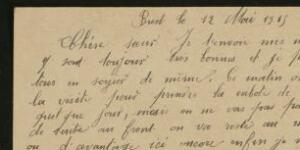 Brest le 12 Mai 1915
Chère sœur Je t'envoie mes n
y sont toujour très bonnes et je p
tous en soyez de même. Ce matin o
la visite pour prendre la
quelque jour, mais on ne vas pas p
de suite au front on va reste au m
ou d'avantage ici encore enfin je